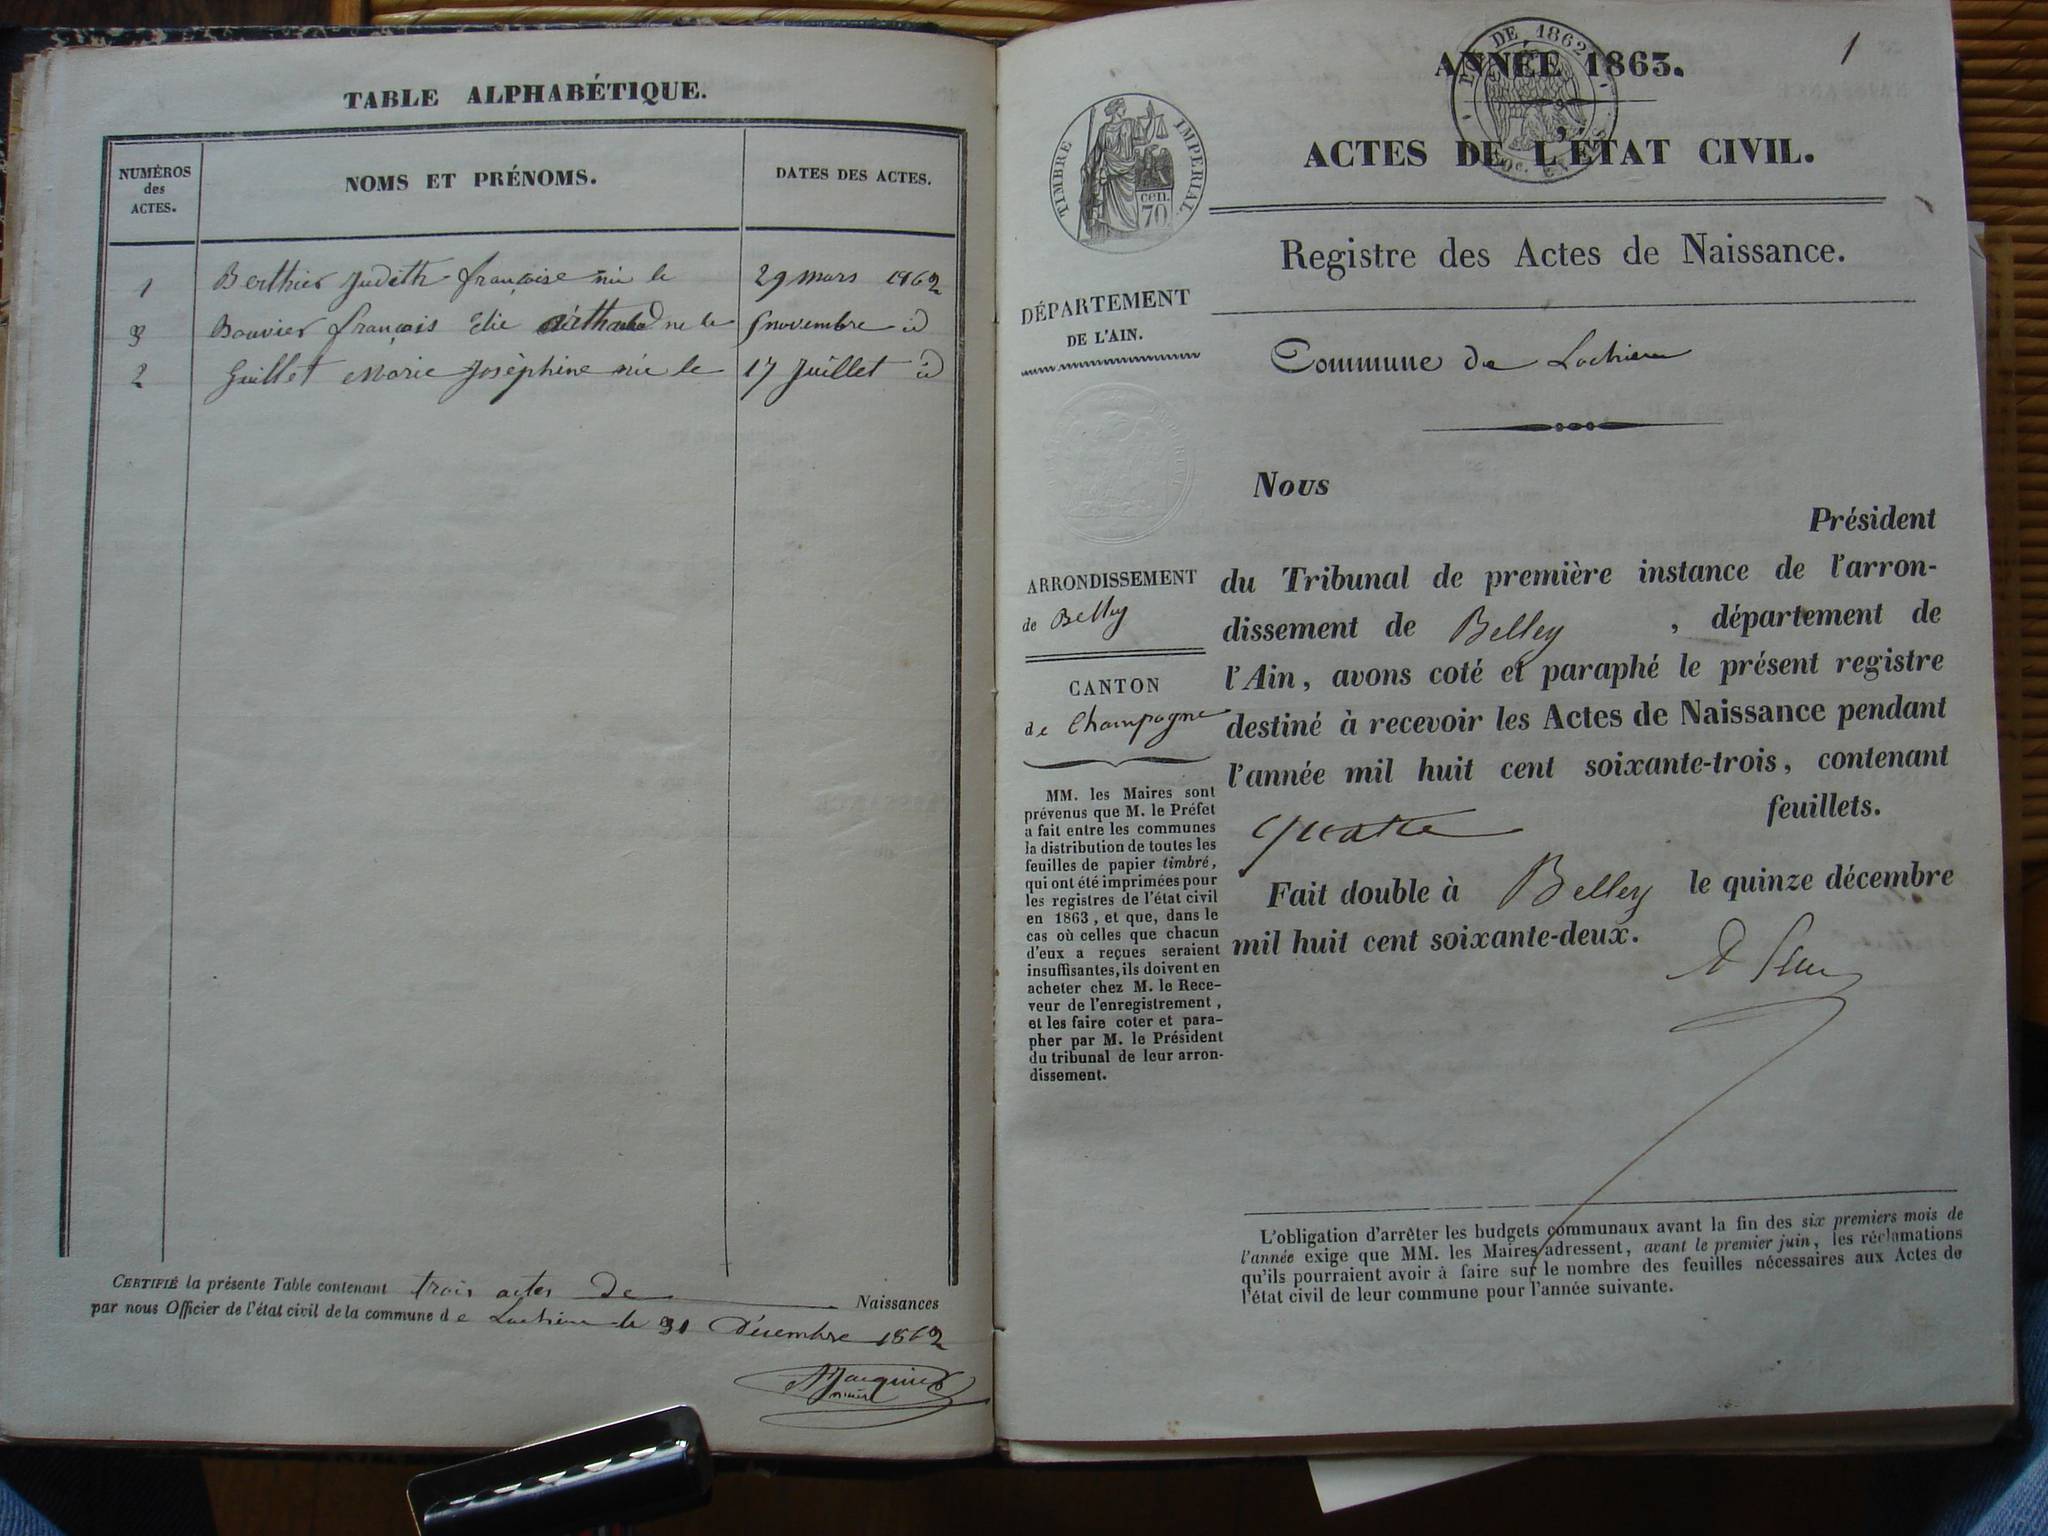 TABLE ALPHABÉTIQUE.
NUMÉROS
des
ACTES.
NOMS ET PRÉNOMS.
DATES DES ACTES.
1 Berthier Judith françoise née le 29 mars 1862
3 Bouvier françois Elie né le novembre id
2 Guillet Marie Joséphine née le 17 Juillet id
CERTIFIÉ la présente Table contenant trois actes de Naissances
par nous Officier de l'état civil de la commune de Lochieu le 31 Décembre 1862
Jacquier
maire
1
ANNÉE 1863.
DE 1862
ACTES DE L'ÉTAT CIVIL.
TIMBRE IMPÉRIAL
70
cen.
Registre des Actes de Naissance.
DÉPARTEMENT
DE L'AIN.
Commune de Lochieu
Nous
Président
du Tribunal de première instance de l'arron-
dissement de Belley , département de
l'Ain, avons coté et paraphé le présent registre
destiné à recevoir les Actes de Naissance pendant
l'année mil huit cent soixante-trois, contenant
quatre feuillets.
Fait double à Belley le quinze décembre
mil huit cent soixante-deux.
ARRONDISSEMENT
de Belley
CANTON
de Champagne
MM. les Maires sont
prévenus que M. le Préfet
a fait entre les communes
la distribution de toutes les
feuilles de papier timbré,
qui ont été imprimées pour
les registres de l'état civil
en 1863, et que, dans le
cas où celles que chacun
d'eux a reçues seraient
insuffisantes, ils doivent en
acheter chez M. le Rece-
veur de l'enregistrement,
et les faire coter et para-
pher par M. le Président
du tribunal de leur arron-
dissement.
L'obligation d'arrêter les budgets communaux avant la fin des six premiers mois de
l'année exige que MM. les Maires adressent, avant le premier juin, les réclamations
qu'ils pourraient avoir à faire sur le nombre des feuilles nécessaires aux Actes de
l'état civil de leur commune pour l'année suivante.